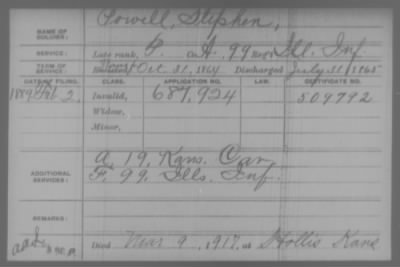 NAME OF SOLDIER: Powell, Stephen,
SERVICE: Late rank, P Co. A, 99 Reg't Ill. Inf.
TERM OF SERVICE: Enlisted Oct. 31, 1864 Discharged July 31, 1865
DATE OF FILING. CLASS. APPLICATION NO. LAW. CERTIFICATE NO.
1889 Feb 2, Invalid, 687,924 509792
Widow,
Minor,
A, 19, Kans. Cav
ADDITIONAL SERVICES: F. 99. Ills. Inf.
REMARKS:
Died Mar 9, 1917, at Hollis Kans